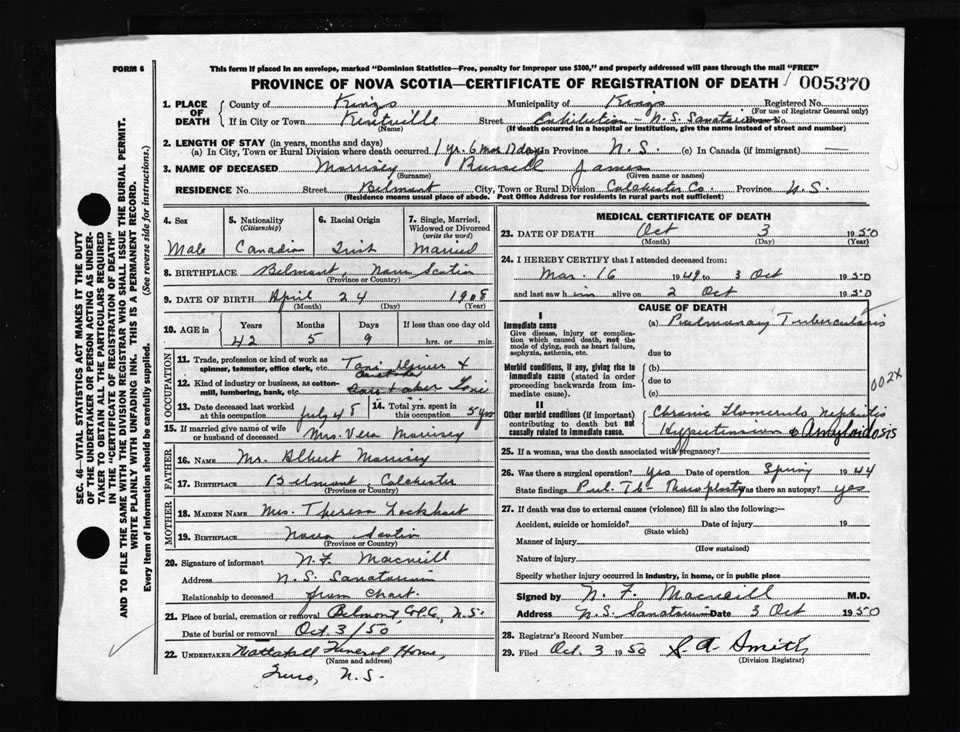 FORM 6
This form if placed in an envelope, marked "Dominion Statistics—Free, penalty for improper use $300," and properly addressed will pass through the mail "FREE"
PROVINCE OF NOVA SCOTIA—CERTIFICATE OF REGISTRATION OF DEATH 005370
1. PLACE OF DEATH County of Kings Municipality of Kings Registered No.
(For use of Registrar General only)
If in City or Town Kentville Street Exhibition - N.S. Sanatorium No.
(Name) (If death occurred in a hospital or institution, give the name instead of street and number)
2. LENGTH OF STAY (in years, months and days)
(a) In City, Town or Rural Division where death occurred 1 yr. 6 mos 17 days In Province N.S. (c) In Canada (if immigrant) —
3. NAME OF DECEASED Morrisey Russell James
(Surname) (Given name or names)
RESIDENCE No. Street Belmont City, Town or Rural Division Colchester Co. Province N.S.
(Residence means usual place of abode. Post Office Address for residents in rural parts not sufficient)
4. Sex 5. Nationality (Citizenship) 6. Racial Origin 7. Single, Married, Widowed or Divorced (write the word)
Male Canadian Irish Married
8. BIRTHPLACE Belmont, Nova Scotia
(Province or Country)
9. DATE OF BIRTH April 24 1908
(Month) (Day) (Year)
10. AGE in Years Months Days If less than one day old
42 5 9 hrs. or min.
OCCUPATION
11. Trade, profession or kind of work as spinner, teamster, office clerk, etc. Taxi Driver &
12. Kind of industry or business, as cotton-mill, lumbering, bank, etc. Taxi
13. Date deceased last worked at this occupation July 48 14. Total yrs. spent in this occupation 5 years
15. If married give name of wife or husband of deceased Mrs. Vera Morrisey
FATHER
16. NAME Mr. Albert Morrisey
17. BIRTHPLACE Belmont, Colchester
(Province or Country)
MOTHER
18. MAIDEN NAME Mrs. Theresa Lockhart
19. BIRTHPLACE Nova Scotia
(Province or Country)
20. Signature of informant N. F. Macneill
Address N.S. Sanatorium
Relationship to deceased from Chart.
21. Place of burial, cremation or removal Belmont, Col. Co., N.S.
Date of burial or removal Oct. 3/50
22. UNDERTAKER Mattatall Funeral Home,
(Name and address)
Truro, N.S.
MEDICAL CERTIFICATE OF DEATH
23. DATE OF DEATH Oct 3 1950
(Month) (Day) (Year)
24. I HEREBY CERTIFY that I attended deceased from:
Mar. 16 1949 to 3 Oct 1950
and last saw him alive on 2 Oct 1950
CAUSE OF DEATH
I
Immediate cause (a) Pulmonary Tuberculosis
Give disease, injury or complication which caused death, not the mode of dying, such as heart failure, asphyxia, asthenia, etc.
due to
Morbid conditions, if any, giving rise to immediate cause (stated in order proceeding backwards from immediate cause).
(b)
due to
(c)
002X
II
Other morbid conditions (if important) contributing to death but not causally related to immediate cause.
Chronic Glomerulo Nephritis
Hypertension & Amyloidosis
25. If a woman, was the death associated with pregnancy?
26. Was there a surgical operation? Yes Date of operation Spring 1944
State findings Pul. Tb - Thoraplasty Was there an autopsy? Yes
27. If death was due to external causes (violence) fill in also the following:—
Accident, suicide or homicide? Date of injury 19
(State which)
Manner of injury
(How sustained)
Nature of injury
Specify whether injury occurred in industry, in home, or in public place
Signed by N. F. Macneill M.D.
Address N.S. Sanatorium Date 3 Oct 1950
28. Registrar's Record Number
29. Filed Oct. 3 1950 A. Smith
(Division Registrar)
SEC. 46—VITAL STATISTICS ACT MAKES IT THE DUTY
OF THE UNDERTAKER OR PERSON ACTING AS UNDER-
TAKER TO OBTAIN ALL THE PARTICULARS REQUIRED
IN THE "CERTIFICATE OF REGISTRATION OF DEATH"
AND TO FILE THE SAME WITH THE DIVISION REGISTRAR WHO SHALL ISSUE THE BURIAL PERMIT.
WRITE PLAINLY WITH UNFADING INK. THIS IS A PERMANENT RECORD.
Every item of information should be carefully supplied. (See reverse side for instructions.)